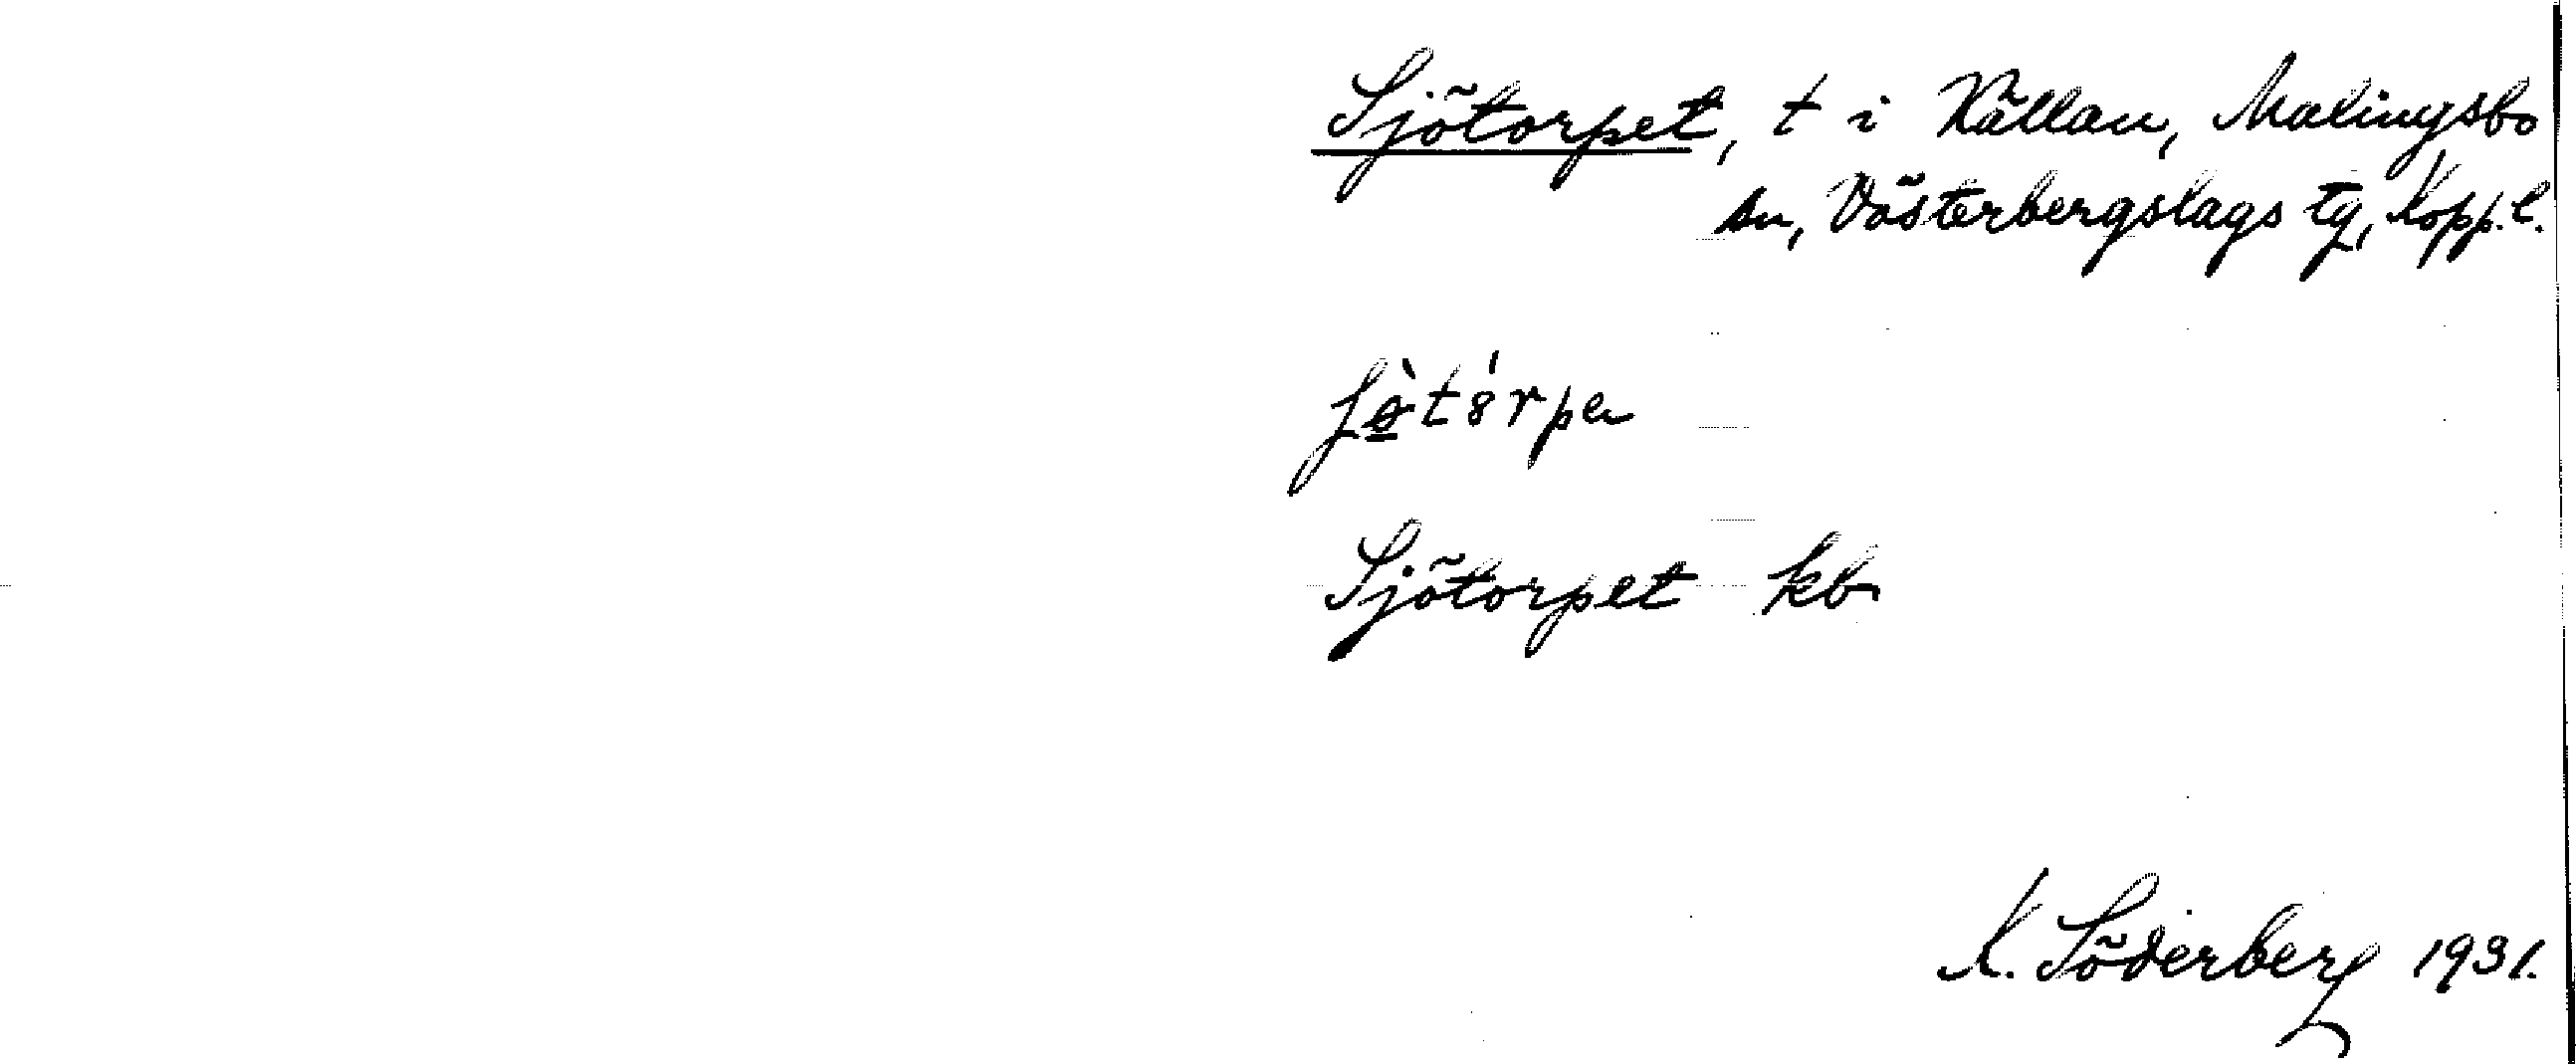 Sjötorpet, t i Källan, Malingsbo
sn, Västerbergslags tg, Kopp. l.
Sjötorpet kb
K. Söderberg 1931.